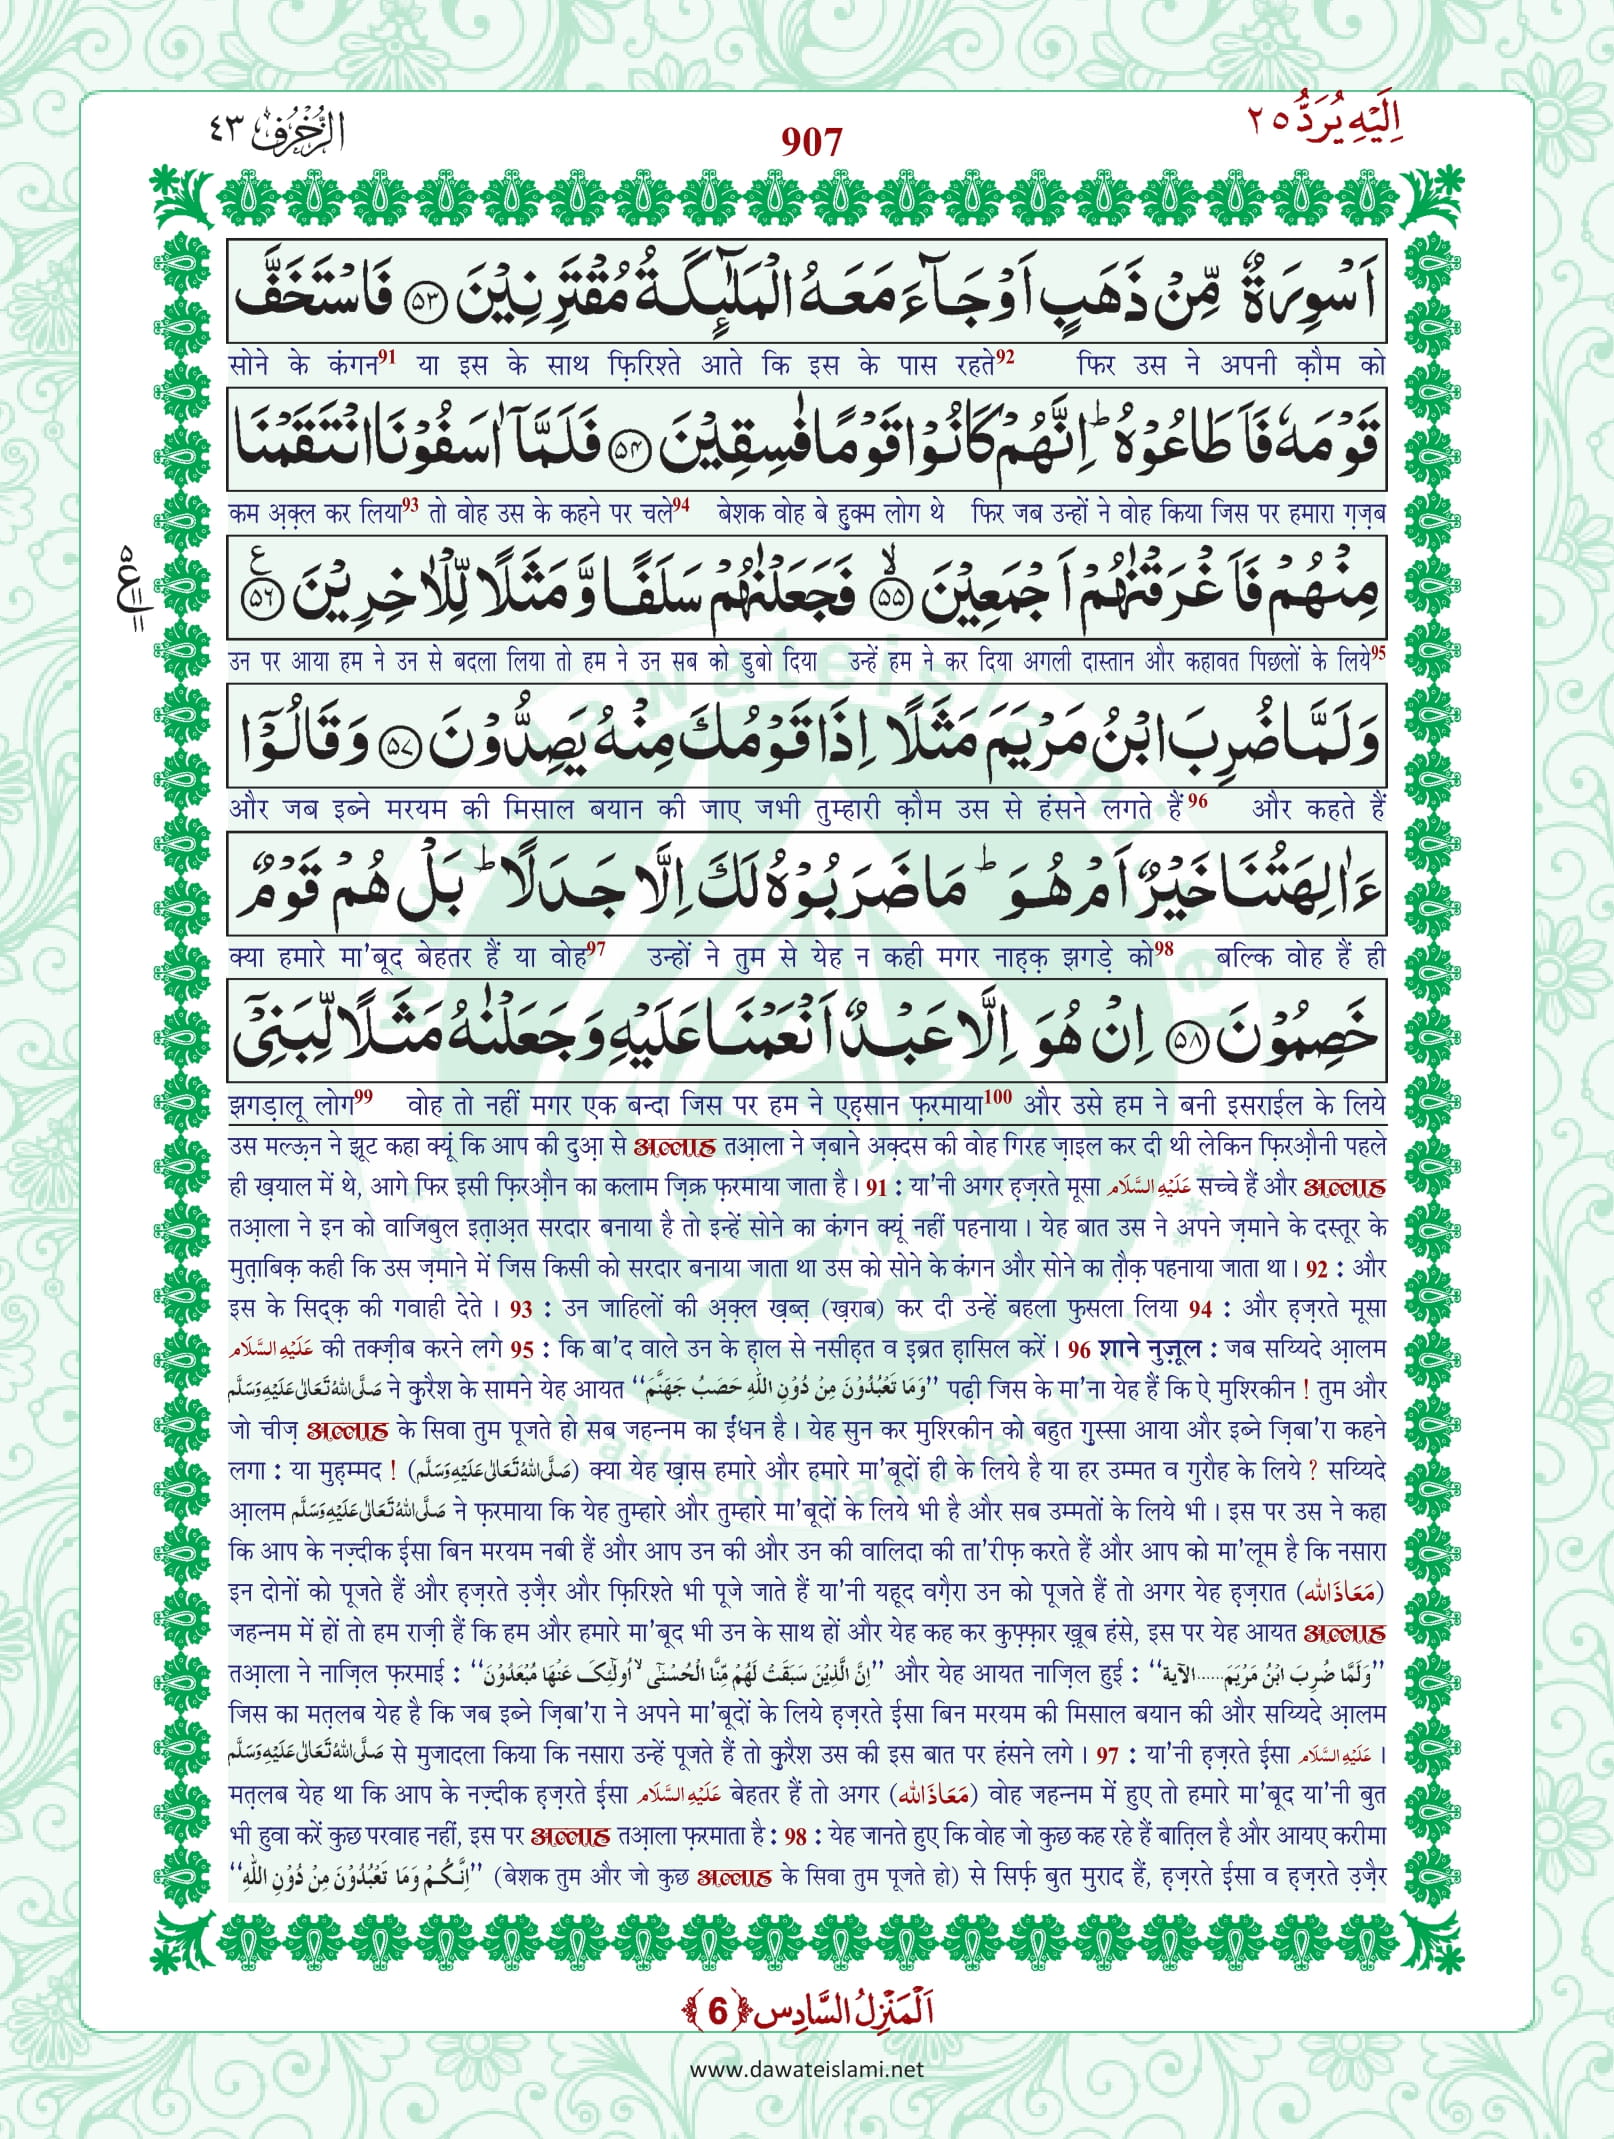 الزُّخْرُف ٤٣
907
اِلَیْهِ یُرَدُّ ٢٥
اَسْوِرَةٌ مِّنْ ذَهَبٍ اَوْ جَآءَ مَعَهُ الْمَلٰٓىٕكَةُ مُقْتَرِنِیْنَ ﴿۵۳﴾ فَاسْتَخَفَّ
सोने के कंगन91 या इस के साथ फ़िरिश्ते आते कि इस के पास रहते92 फिर उस ने अपनी क़ौम को
قَوْمَهٗ فَاَطَاعُوْهُؕ اِنَّهُمْ كَانُوْا قَوْمًا فٰسِقِیْنَ ﴿۵۴﴾ فَلَمَّاۤ اٰسَفُوْنَا انْتَقَمْنَا
कम अ़क़्ल कर लिया93 तो वोह उस के कहने पर चले94 बेशक वोह बे हुक्म लोग थे फिर जब उन्हों ने वोह किया जिस पर हमारा ग़ज़ब
مِنْهُمْ فَاَغْرَقْنٰهُمْ اَجْمَعِیْنَۙ ﴿۵۵﴾ فَجَعَلْنٰهُمْ سَلَفًا وَّ مَثَلًا لِّلْاٰخِرِیْنَ۠ ﴿۵۶﴾
उन पर आया हम ने उन से बदला लिया तो हम ने उन सब को डुबो दिया उन्हें हम ने कर दिया अगली दास्तान और कहावत पिछलों के लिये95
وَ لَمَّا ضُرِبَ ابْنُ مَرْیَمَ مَثَلًا اِذَا قَوْمُكَ مِنْهُ یَصِدُّوْنَ ﴿۵۷﴾ وَ قَالُوْۤا
और जब इब्ने मरयम की मिसाल बयान की जाए जभी तुम्हारी क़ौम उस से हंसने लगते हैं96 और कहते हैं
ءَاٰلِهَتُنَا خَیْرٌ اَمْ هُوَؕ مَا ضَرَبُوْهُ لَكَ اِلَّا جَدَلًاؕ بَلْ هُمْ قَوْمٌ
क्या हमारे मा'बूद बेहतर हैं या वोह97 उन्हों ने तुम से येह न कही मगर नाह़क़ झगड़े को98 बल्कि वोह हैं ही
خَصِمُوْنَ ﴿۵۸﴾ اِنْ هُوَ اِلَّا عَبْدٌ اَنْعَمْنَا عَلَیْهِ وَ جَعَلْنٰهُ مَثَلًا لِّبَنِیْۤ
झगड़ालू लोग99 वोह तो नहीं मगर एक बन्दा जिस पर हम ने एह़सान फ़रमाया100 और उसे हम ने बनी इसराईल के लिये
उस मल्ऊ़न ने झूट कहा क्यूं कि आप की दुआ़ से अल्लाह तआ़ला ने ज़बाने अक़्दस की वोह गिरह ज़ाइल कर दी थी लेकिन फ़िरऔ़नी पहले
ही ख़याल में थे, आगे फिर इसी फ़िरऔ़न का कलाम ज़िक्र फ़रमाया जाता है। 91 : या'नी अगर ह़ज़रते मूसा عَلَيْهِ السَّلَام सच्चे हैं और अल्लाह
तआ़ला ने इन को वाजिबुल इत़ाअ़त सरदार बनाया है तो इन्हें सोने का कंगन क्यूं नहीं पहनाया। येह बात उस ने अपने ज़माने के दस्तूर के
मुत़ाबिक़ कही कि उस ज़माने में जिस किसी को सरदार बनाया जाता था उस को सोने के कंगन और सोने का त़ौक़ पहनाया जाता था। 92 : और
इस के सिद्क़ की गवाही देते। 93 : उन जाहिलों की अ़क़्ल ख़ब्त़ (ख़राब) कर दी उन्हें बहला फुसला लिया 94 : और ह़ज़रते मूसा
عَلَيْهِ السَّلَام की तक्ज़ीब करने लगे 95 : कि बा'द वाले उन के ह़ाल से नसीह़त व इ़ब्रत ह़ासिल करें। 96 शाने नुज़ूल : जब सय्यिदे आ़लम
صَلَّى اللهُ تَعَالٰى عَلَيْهِ وَسَلَّم ने कु़रैश के सामने येह आयत ‘‘وَمَا تَعْبُدُوْنَ مِنْ دُوْنِ اللّٰهِ حَصَبُ جَهَنَّمَ’’ पढ़ी जिस के मा'ना येह हैं कि ऐ मुश्रिकीन ! तुम और
जो चीज़ अल्लाह के सिवा तुम पूजते हो सब जहन्नम का ईंधन है। येह सुन कर मुश्रिकीन को बहुत ग़ुस्सा आया और इब्ने ज़िबा'रा कहने
लगा : या मुह़म्मद ! (صَلَّى اللهُ تَعَالٰى عَلَيْهِ وَسَلَّم) क्या येह ख़ास हमारे और हमारे मा'बूदों ही के लिये है या हर उम्मत व गुरौह के लिये ? सय्यिदे
आ़लम صَلَّى اللهُ تَعَالٰى عَلَيْهِ وَسَلَّم ने फ़रमाया कि येह तुम्हारे और तुम्हारे मा'बूदों के लिये भी है और सब उम्मतों के लिये भी। इस पर उस ने कहा
कि आप के नज़्दीक ई़सा बिन मरयम नबी हैं और आप उन की और उन की वालिदा की ता'रीफ़ करते हैं और आप को मा'लूम है कि नसारा
इन दोनों को पूजते हैं और ह़ज़रते उ़ज़ैर और फ़िरिश्ते भी पूजे जाते हैं या'नी यहूद वग़ैरा उन को पूजते हैं तो अगर येह ह़ज़रात (مَعَاذَ الله)
जहन्नम में हों तो हम राज़ी हैं कि हम और हमारे मा'बूद भी उन के साथ हों और येह कह कर कुफ़्फ़ार ख़ूब हंसे, इस पर येह आयत अल्लाह
तआ़ला ने नाज़िल फ़रमाई : ‘‘اِنَّ الَّذِيْنَ سَبَقَتْ لَهُمْ مِّنَّا الْحُسْنٰٓى ۙ اُولٰٓئِكَ عَنْهَا مُبْعَدُوْنَ’’ और येह आयत नाज़िल हुई : ‘‘وَلَمَّا ضُرِبَ ابْنُ مَرْيَمَ......الآية’’
जिस का मत़लब येह है कि जब इब्ने ज़िबा'रा ने अपने मा'बूदों के लिये ह़ज़रते ई़सा बिन मरयम की मिसाल बयान की और सय्यिदे आ़लम
صَلَّى اللهُ تَعَالٰى عَلَيْهِ وَسَلَّم से मुजादला किया कि नसारा उन्हें पूजते हैं तो कु़रैश उस की इस बात पर हंसने लगे। 97 : या'नी ह़ज़रते ई़सा عَلَيْهِ السَّلَام ।
मत़लब येह था कि आप के नज़्दीक ह़ज़रते ई़सा عَلَيْهِ السَّلَام बेहतर हैं तो अगर (مَعَاذَ الله) वोह जहन्नम में हुए तो हमारे मा'बूद या'नी बुत
भी हुवा करें कुछ परवाह नहीं, इस पर अल्लाह तआ़ला फ़रमाता है : 98 : येह जानते हुए कि वोह जो कुछ कह रहे हैं बात़िल है और आयए करीमा
‘‘اِنَّكُمْ وَمَا تَعْبُدُوْنَ مِنْ دُوْنِ اللّٰهِ’’ (बेशक तुम और जो कुछ अल्लाह के सिवा तुम पूजते हो) से सिर्फ़ बुत मुराद हैं, ह़ज़रते ई़सा व ह़ज़रते उ़ज़ैर
اَلْمَنْزِلُ السَّادِس ﴿6﴾
www.dawateislami.net